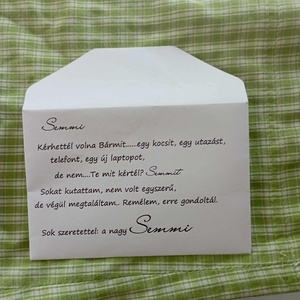 Semmi
Kérhettél volna Bármit.....egy kocsit, egy utazást,
telefont, egy új laptopot,
de nem....Te mit kértél? Semmit
Sokat kutattam, nem volt egyszerű,
de végül megtaláltam.. Remélem, erre gondoltál.
Sok szeretettel: a nagy Semmi